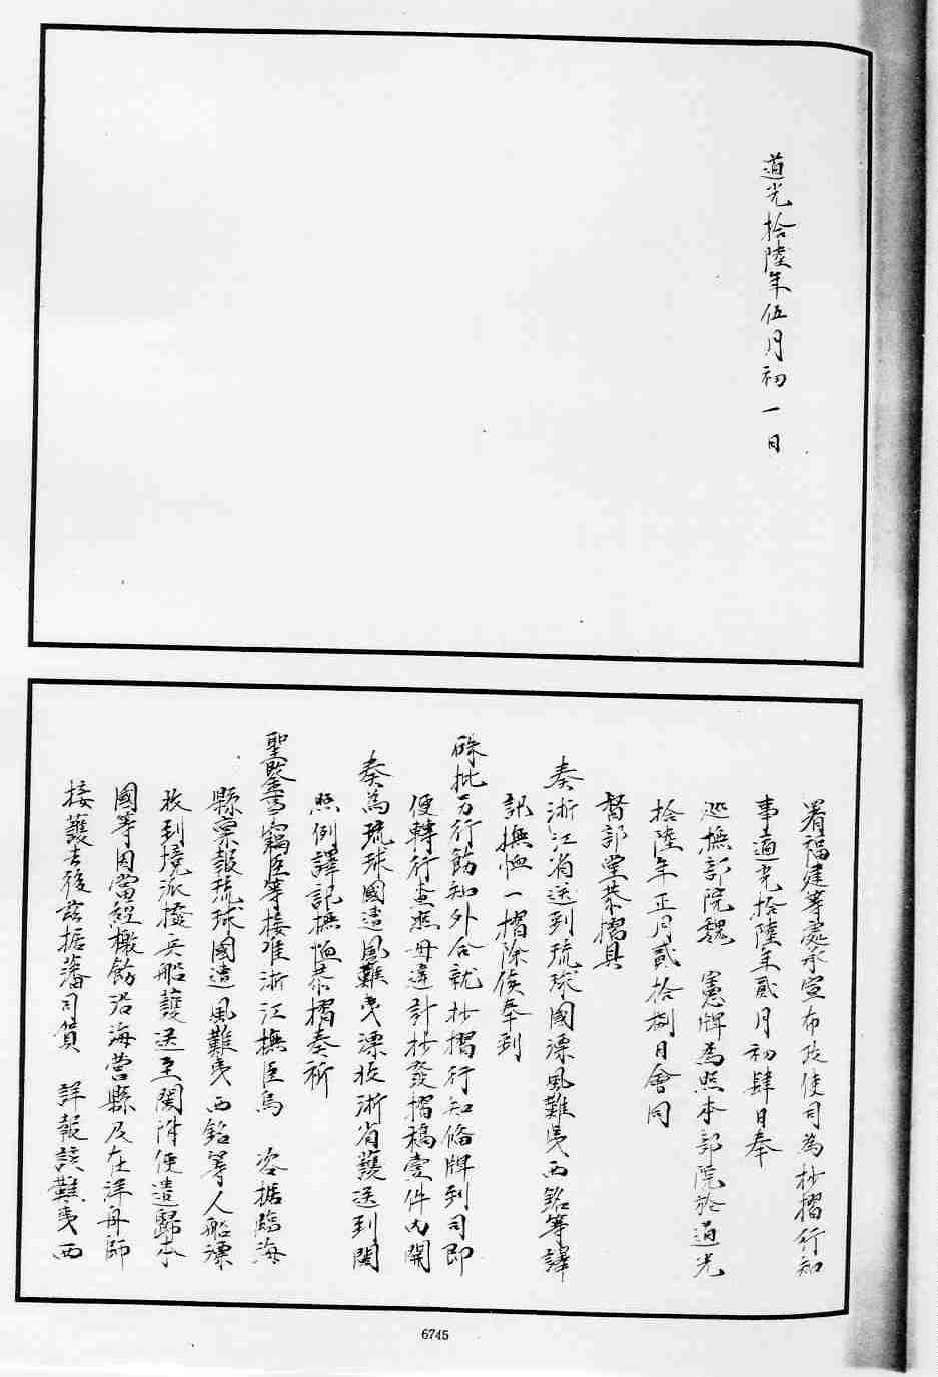 道光拾陸年伍月初一日
署福建等處承宣布政使司為抄摺行知
事道光拾陸年貳月初肆日奉
巡撫部院魏 憲牌為照本部院於道光
拾陸年正月貳拾捌日會同
督部堂恭摺具
奏浙江省送到琉球國漂風難夷西銘等譯
訊撫恤一摺除俟奉到
硃批另行飭知外合就抄摺行知備牌到司即
便轉行查照毋違計抄發摺稿壹件內開
奏為琉球國遭風難夷漂收浙省護送到閩
照例譯訊撫恤恭摺奏祈
聖鑒事竊臣等接准浙江撫臣烏 咨據臨海
縣稟報琉球國遭風難夷西銘等人船漂
收到境派撥兵船護送至閩附便遣歸本
國等因當經檄飭沿海營縣及在洋舟師
接護去後茲據藩司 詳報該難夷西
6745